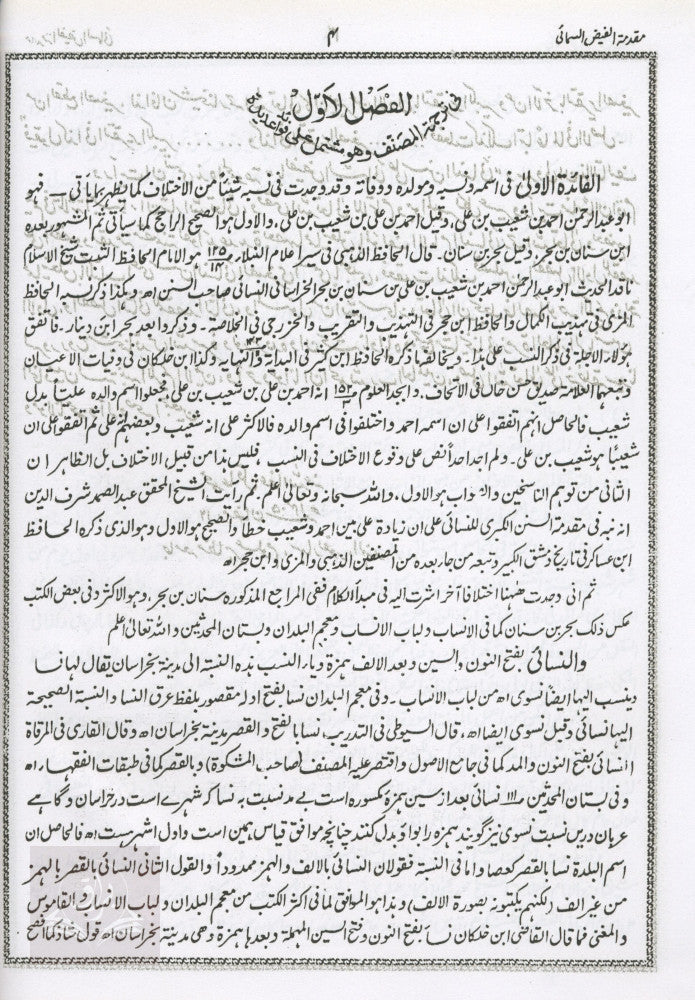 مقدمة الفيض السمائی
۴
الفصل الاوّل
فی ترجمة المصنف وهو مشتمل علی فوائد
الفائدة الاولیٰ فی اسمه ونسبه ومولده ووفاته وقد وجدت فی نسبه شیئاً من الاختلاف کما یظهر بما یأتی ـ فهو
ابو عبدالرحمٰن احمد بن شعیب بن علی، وقیل احمد بن علی بن شعیب بن علی، والاول هو الصحیح الراجح کما سیأتی ثم المشهور بعده
ابن سنان بن بحر، وقیل بحر بن سنان ۔ قال الحافظ الذهبی فی سیر اعلام النبلاء ۱۲۵/۱۴ هو الامام الحافظ الثبت شیخ الاسلام
ناقد الحدیث ابو عبدالرحمٰن احمد بن شعیب بن علی بن سنان بن بحر الخراسانی النسائی صاحب السنن اه وهکذا ذکر نسبه الحافظ
المزی فی تهذیب الکمال والحافظ ابن حجر فی التهذیب والتقریب والخزرجی فی الخلاصة ۔ وذکروا بعد بحر ابن دینار ۔ فاتفق
هؤلاء الاجلة فی ذکر النسب علی هذا ۔ ویخالفها ذکره الحافظ ابن کثیر فی البدایة والنهایه وکذا ابن خلکان فی وفیات الاعیان
وتبعهما العلامة صدیق حسن خان فی الاتحاف، وابجد العلوم ۱۵۲/۳ انه احمد بن علی بن شعیب بن علی، فجعلوا اسم والده علیاً بدل
شعیب فالحاصل انهم اتفقوا علی ان اسمه احمد واختلفوا فی اسم والده فالاکثر علی انه شعیب وبعضهم علی ثم اتفقوا علی ان
شعیبًا هو شعیب بن علی ۔ ولم اجد احداً نص علی وقوع الاختلاف فی النسب فلیس هذا من قبیل الاختلاف بل الظاهر ان
الثانی من توهم الناسخین والصواب هو الاول، والله سبحانه وتعالی اعلم، ثم رأیت الشیخ المحقق عبدالصمد شرف الدین
انه نبه فی مقدمة السنن الکبری للنسائی علی ان زیادة علی بین احمد وشعیب خطأ والصحیح هو الاول وهو الذی ذکره الحافظ
ابن عساکر فی تاریخ دمشق الکبیر وتبعه من جاء بعده من المصنفین الذهبی والمزی وابن حجر اه
ثم انی وجدت ههنا اختلافا آخر اشرت الیه فی مبدأ الکلام ففی المراجع المذکوره سنان بن بحر، وهو الاکثر وفی بعض الکتب
عکس ذلک بحر بن سنان کما فی الانساب ولباب الانساب ومعجم البلدان وبستان المحدثین والله تعالیٰ اعلم
والنسائی بفتح النون والسین وبعد الالف همزة ویاء النسب هذه النسبة الی مدینة بخراسان یقال لها نسا
وینسب الیها ایضًا نسوی اه من لباب الانساب ۔ وفی معجم البلدان نسا بفتح اوله مقصور بلفظ عرق النسا والنسبة الصحیحة
الیها نسائی وقیل نسوی ایضا اه، قال السیوطی فی التدریب، نسا بالفتح والقصر مدینة بخراسان اه وقال القاری فی المرقاة
النسائی بفتح النون والمد کما فی جامع الاصول واقتصر علیه المصنف (صاحب المشکوة) وبالقصر کما فی طبقات الفقهاء اه
وفی بستان المحدثین ۱۱۱ نسائی بعد از سین همزه مکسوره است بے مد نسبت به نسا که شهرے است در خراسان وگاهے
عربان دریں نسبت نسوی نیز گویند همزه را بواؤ بدل کنند چنانچه موافق قیاس همین است واول اشهر ست اه فالحاصل ان
اسم البلدة نسا بالقصر کعصا واما فی النسبة فقولان النسائی بالالف والهمز ممدوداً والقول الثانی النسائی بالقصر بالهمز
من غیر الف (لکنهم یکتبونه بصورة الالف) وهذا هو الموافق لما فی اکثر الکتب من معجم البلدان ولباب الانساب والقاموس
والمغنی فما قال القاضی ابن خلکان نسأ بفتح النون وفتح السین المهملة وبعدها همزة وهی مدینة بخراسان اه قول شاذ کما افصح